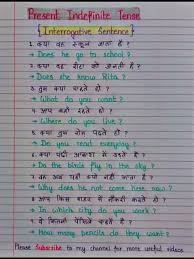 Present Indefinite Tense
{ Interrogative Sentence }
1. क्या वह स्कूल जाता है ?
→ Does he go to school ?
2. क्या वह रीटा को जानती है ?
→ Does she know Rita ?
3. तुम क्या चाहते हो ?
→ What do you want ?
4. आप कहाँ रहते हैं ?
→ Where do you live ?
5. क्या तुम रोज पढ़ते हो ?
→ Do you read everyday ?
6. क्या पक्षी आकाश में उड़ते हैं ?
→ Do the birds fly in the sky ?
7. अब वह यहाँ क्यों नहीं आता है ?
→ Why does he not come here now ?
8. आप किस शहर में नौकरी करते हो ?
→ In which city do you work ?
9. वे कितनी पेंसिलें चाहते हैं ?
→ How many pencils do they want ?
Please Subscribe to my channel for more useful videos